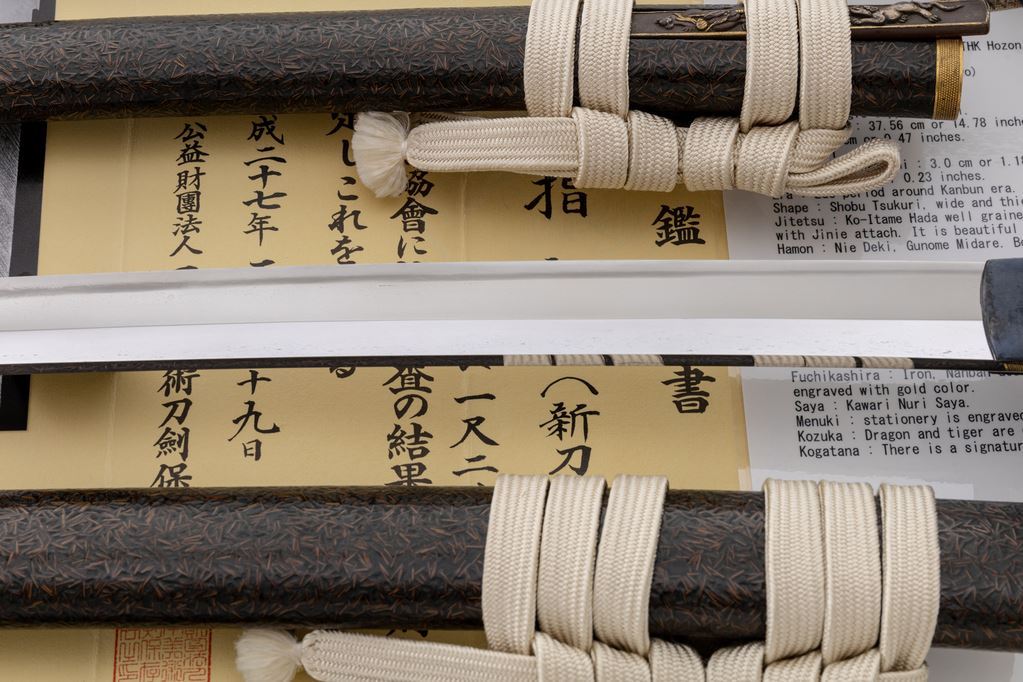 鑑
書
指
（新刀
一又二
協會に
査の結果
定しこれを
る
成二十七年
十九日
公益財團法人
術刀劍保
THK Hozon
: 37.56 cm or 14.78 inche
0.47 inches.
: 3.0 cm or 1.18
0.23 inches.
period around Kanbun era.
Shape : Shobu Tsukuri, wide and thi
Jitetsu : Ko-Itame Hada well graine
with Jinie attach. It is beautiful
Hamon : Nie Deki, Gunome Midare. Be
Fuchikashira : Iron, Nanban
engraved with gold color.
Saya : Kawari Nuri Saya.
Menuki : stationery is engrave
Kozuka : Dragon and tiger are
Kogatana : There is a signatur